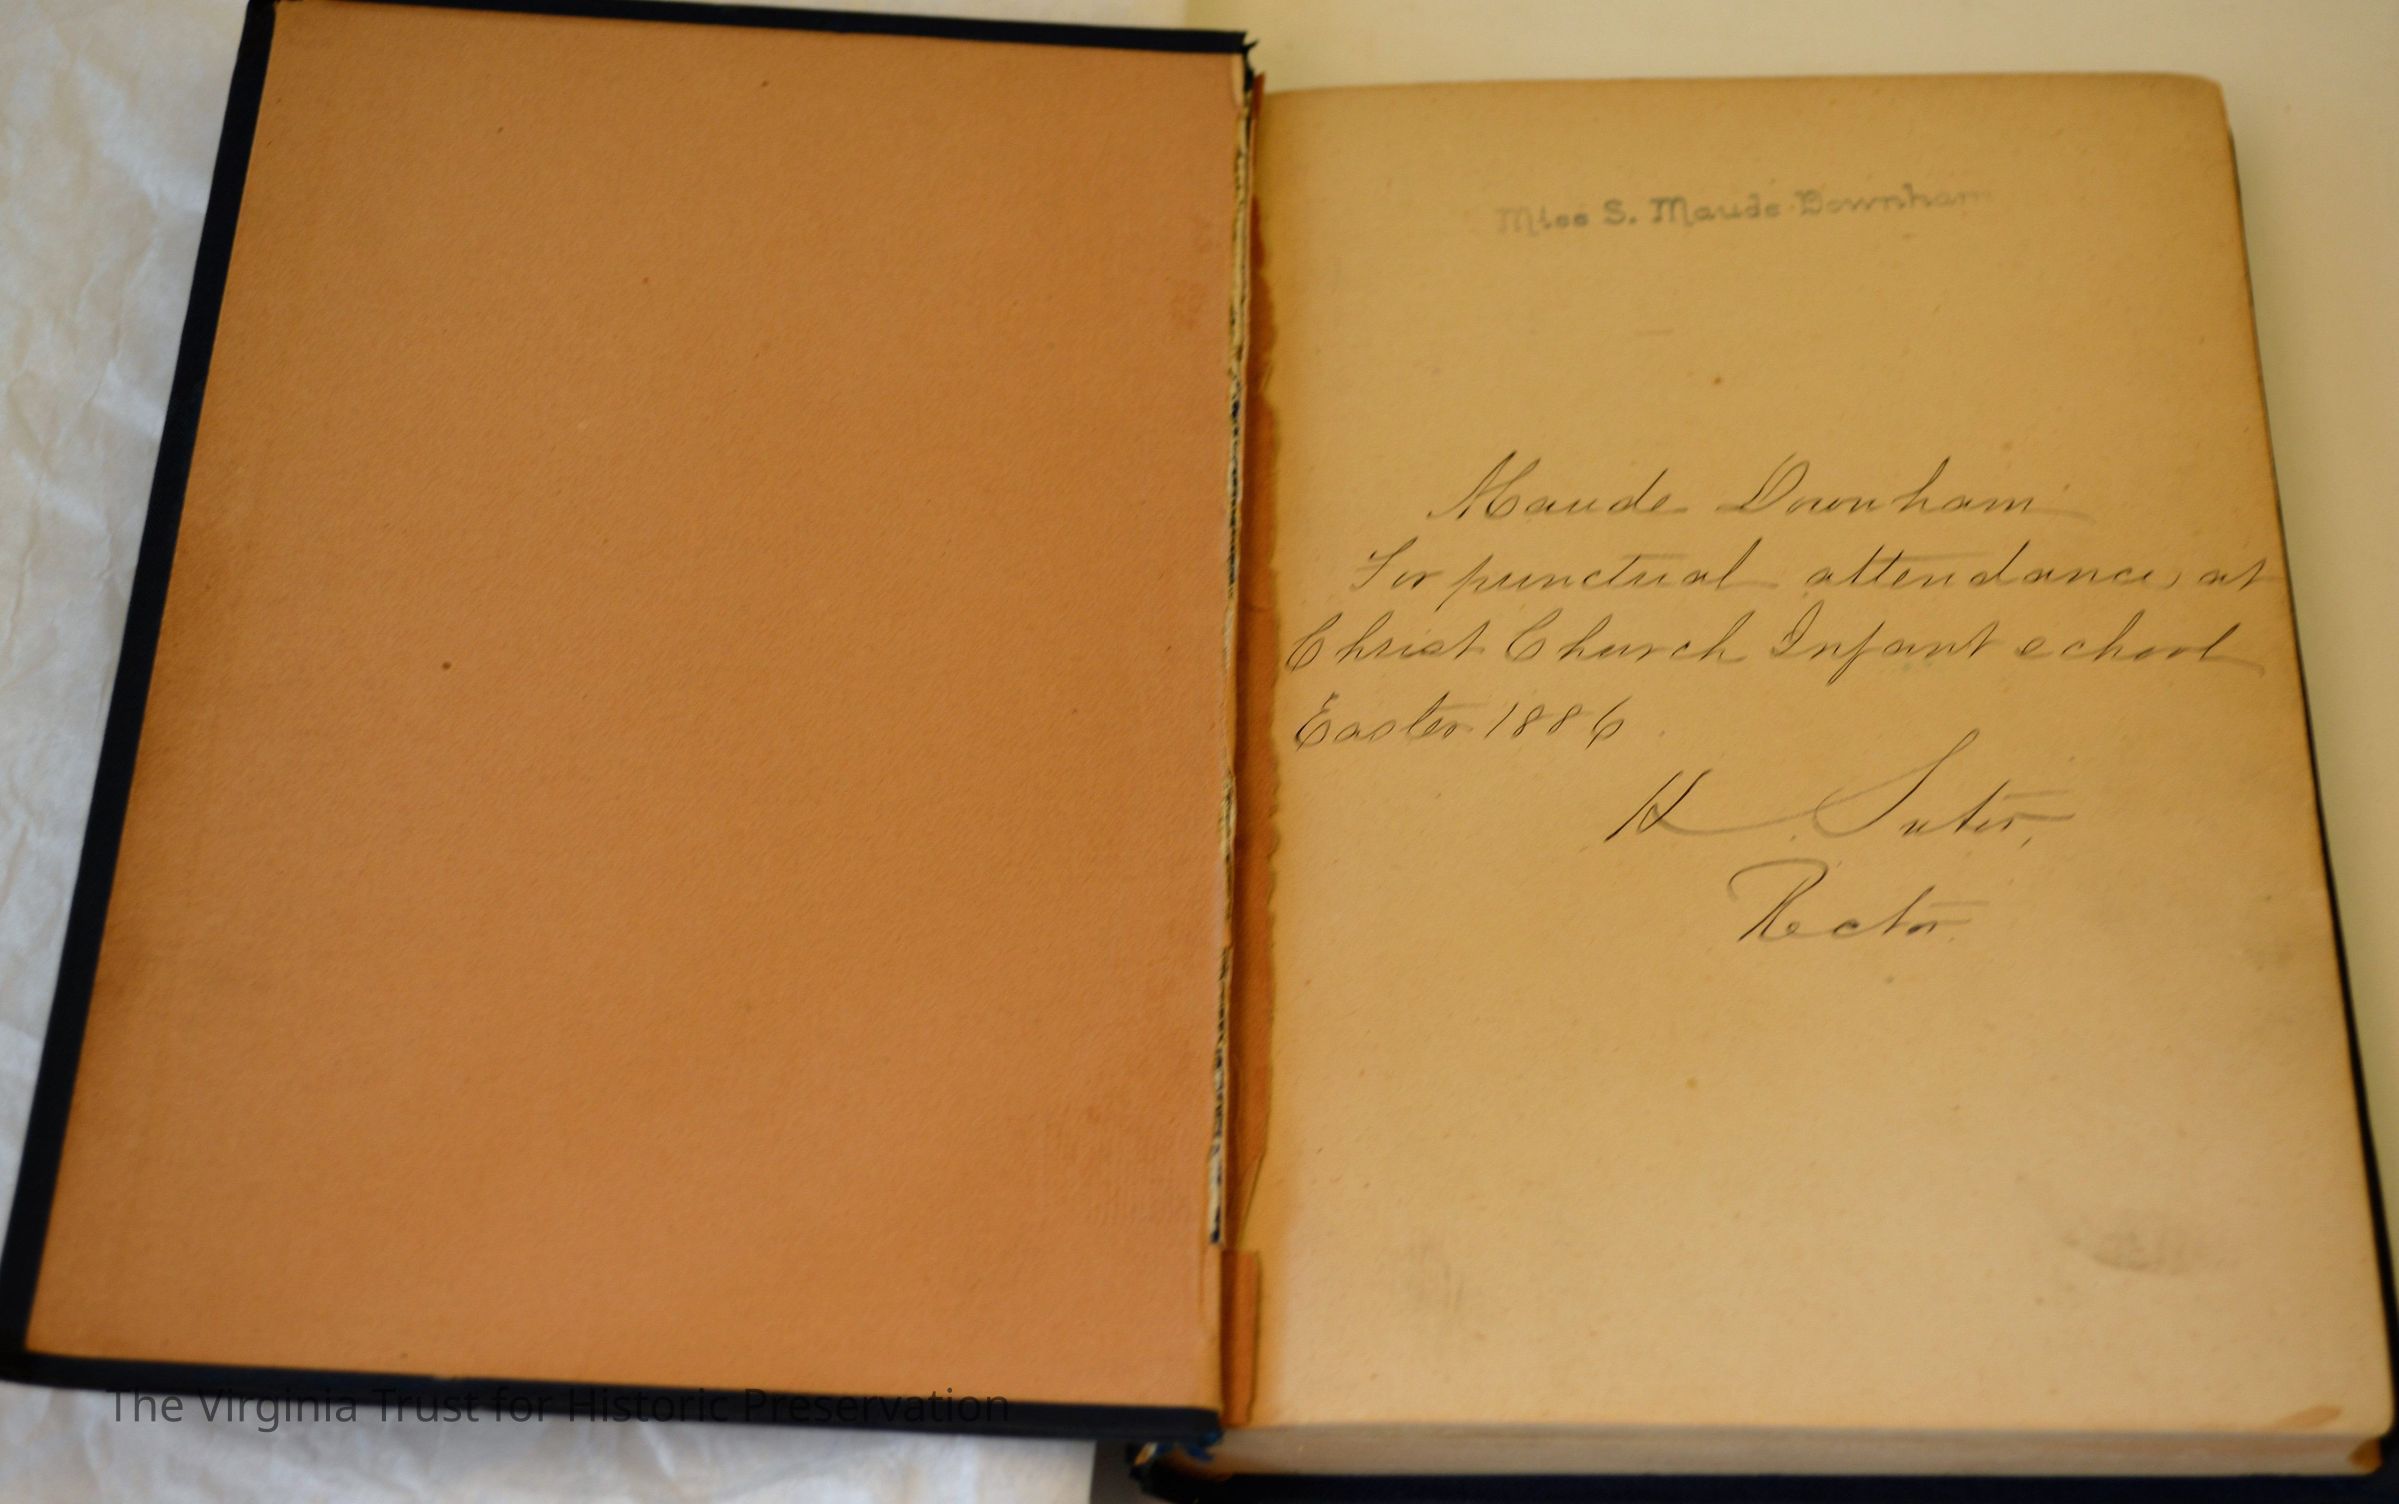 Miss S. Maude Downham
Maude Downham
For punctual attendance, at
Christ Church Infant school
Easter 1886
H. Suter,
Rector
The Virginia Trust for Historic Preservation